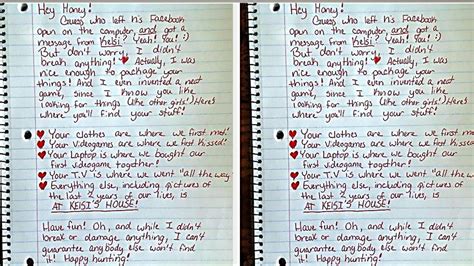 Hey Honey!
Guess who left his Facebook
open on the computer, and got a
message from Keisi? Yeah! You! :)
But don't worry, I didn't
break anything! ♥ Actually, I was
nice enough to package your
things! And I even invented a neat
game, since I know you like
looking for things (like other girls!) Here's
where you'll find your stuff!
♥ Your clothes are where we first met!
♥ Your videogames are where we first kissed!
♥ Your Laptop is where we bought our
first videogame together!
♥ Your T.V is where we went "all the way"
♥ Everything else, including pictures of
the last 2 years of our lives, is
AT KEISI'S HOUSE!
Have fun! Oh, and while I didn't
break or damage anything, I can't
guarantee anybody else won't find
it! Happy hunting!
Hey Honey!
Guess who left his Facebook
open on the computer, and got a
message from Keisi? Yeah! You! :)
But don't worry, I didn't
break anything! ♥ Actually, I was
nice enough to package your
things! And I even invented a neat
game, since I know you like
looking for things (like other girls!) Here's
where you'll find your stuff!
♥ Your clothes are where we first met!
♥ Your videogames are where we first kissed!
♥ Your Laptop is where we bought our
first videogame together!
♥ Your T.V is where we went "all the way"
♥ Everything else, including pictures of
the last 2 years of our lives, is
AT KEISI'S HOUSE!
Have fun! Oh, and while I didn't
break or damage anything, I can't
guarantee anybody else won't find
it! Happy hunting!